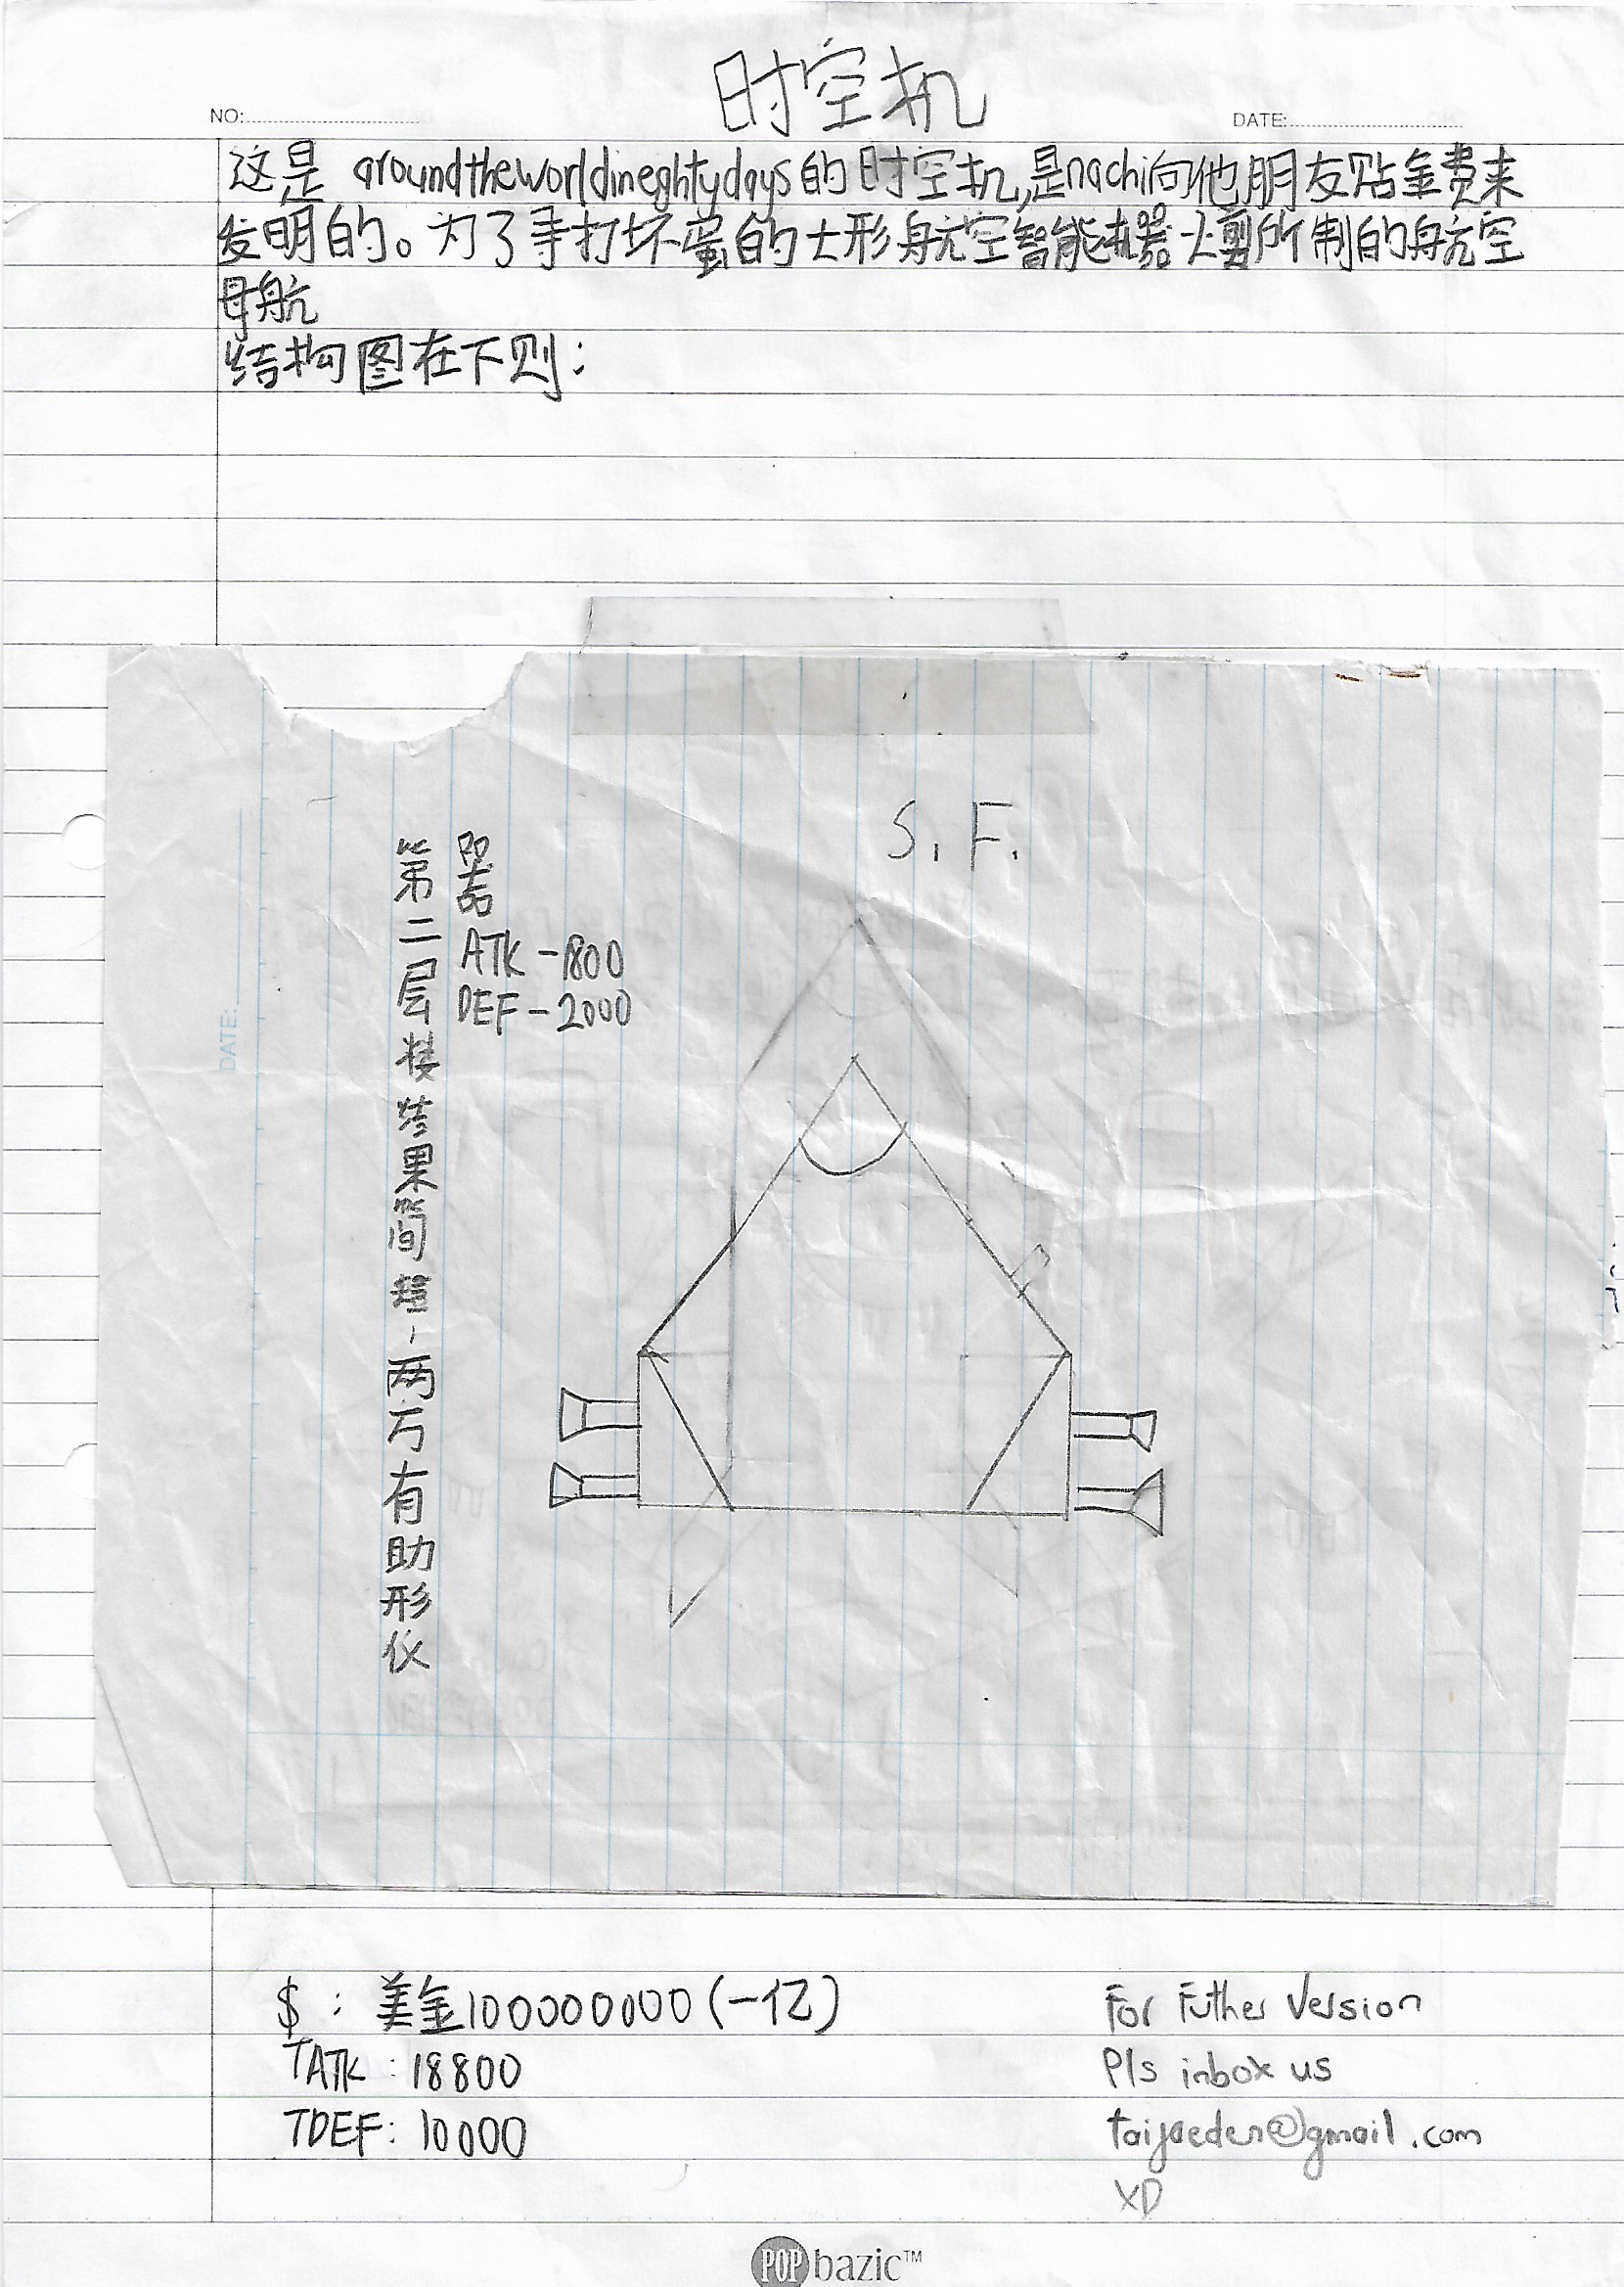 时空机
NO:
DATE:
这是 aroundtheworldineghtydays的时空机,是nachi向他朋友贴金费来
发明的。为了手打坏蛋的大形航空智能机器 所制的航空
母航
结构图在下则:
S. F.
DATE:
第二层 结果简 两方有助形仪
器
ATK -1800
DEF -2000
$ : 美金100000000(一亿)
TATK : 18800
TDEF: 10000
For Futher Version
Pls inbox us
taijaeden@gmail.com
XD
POP bazic™